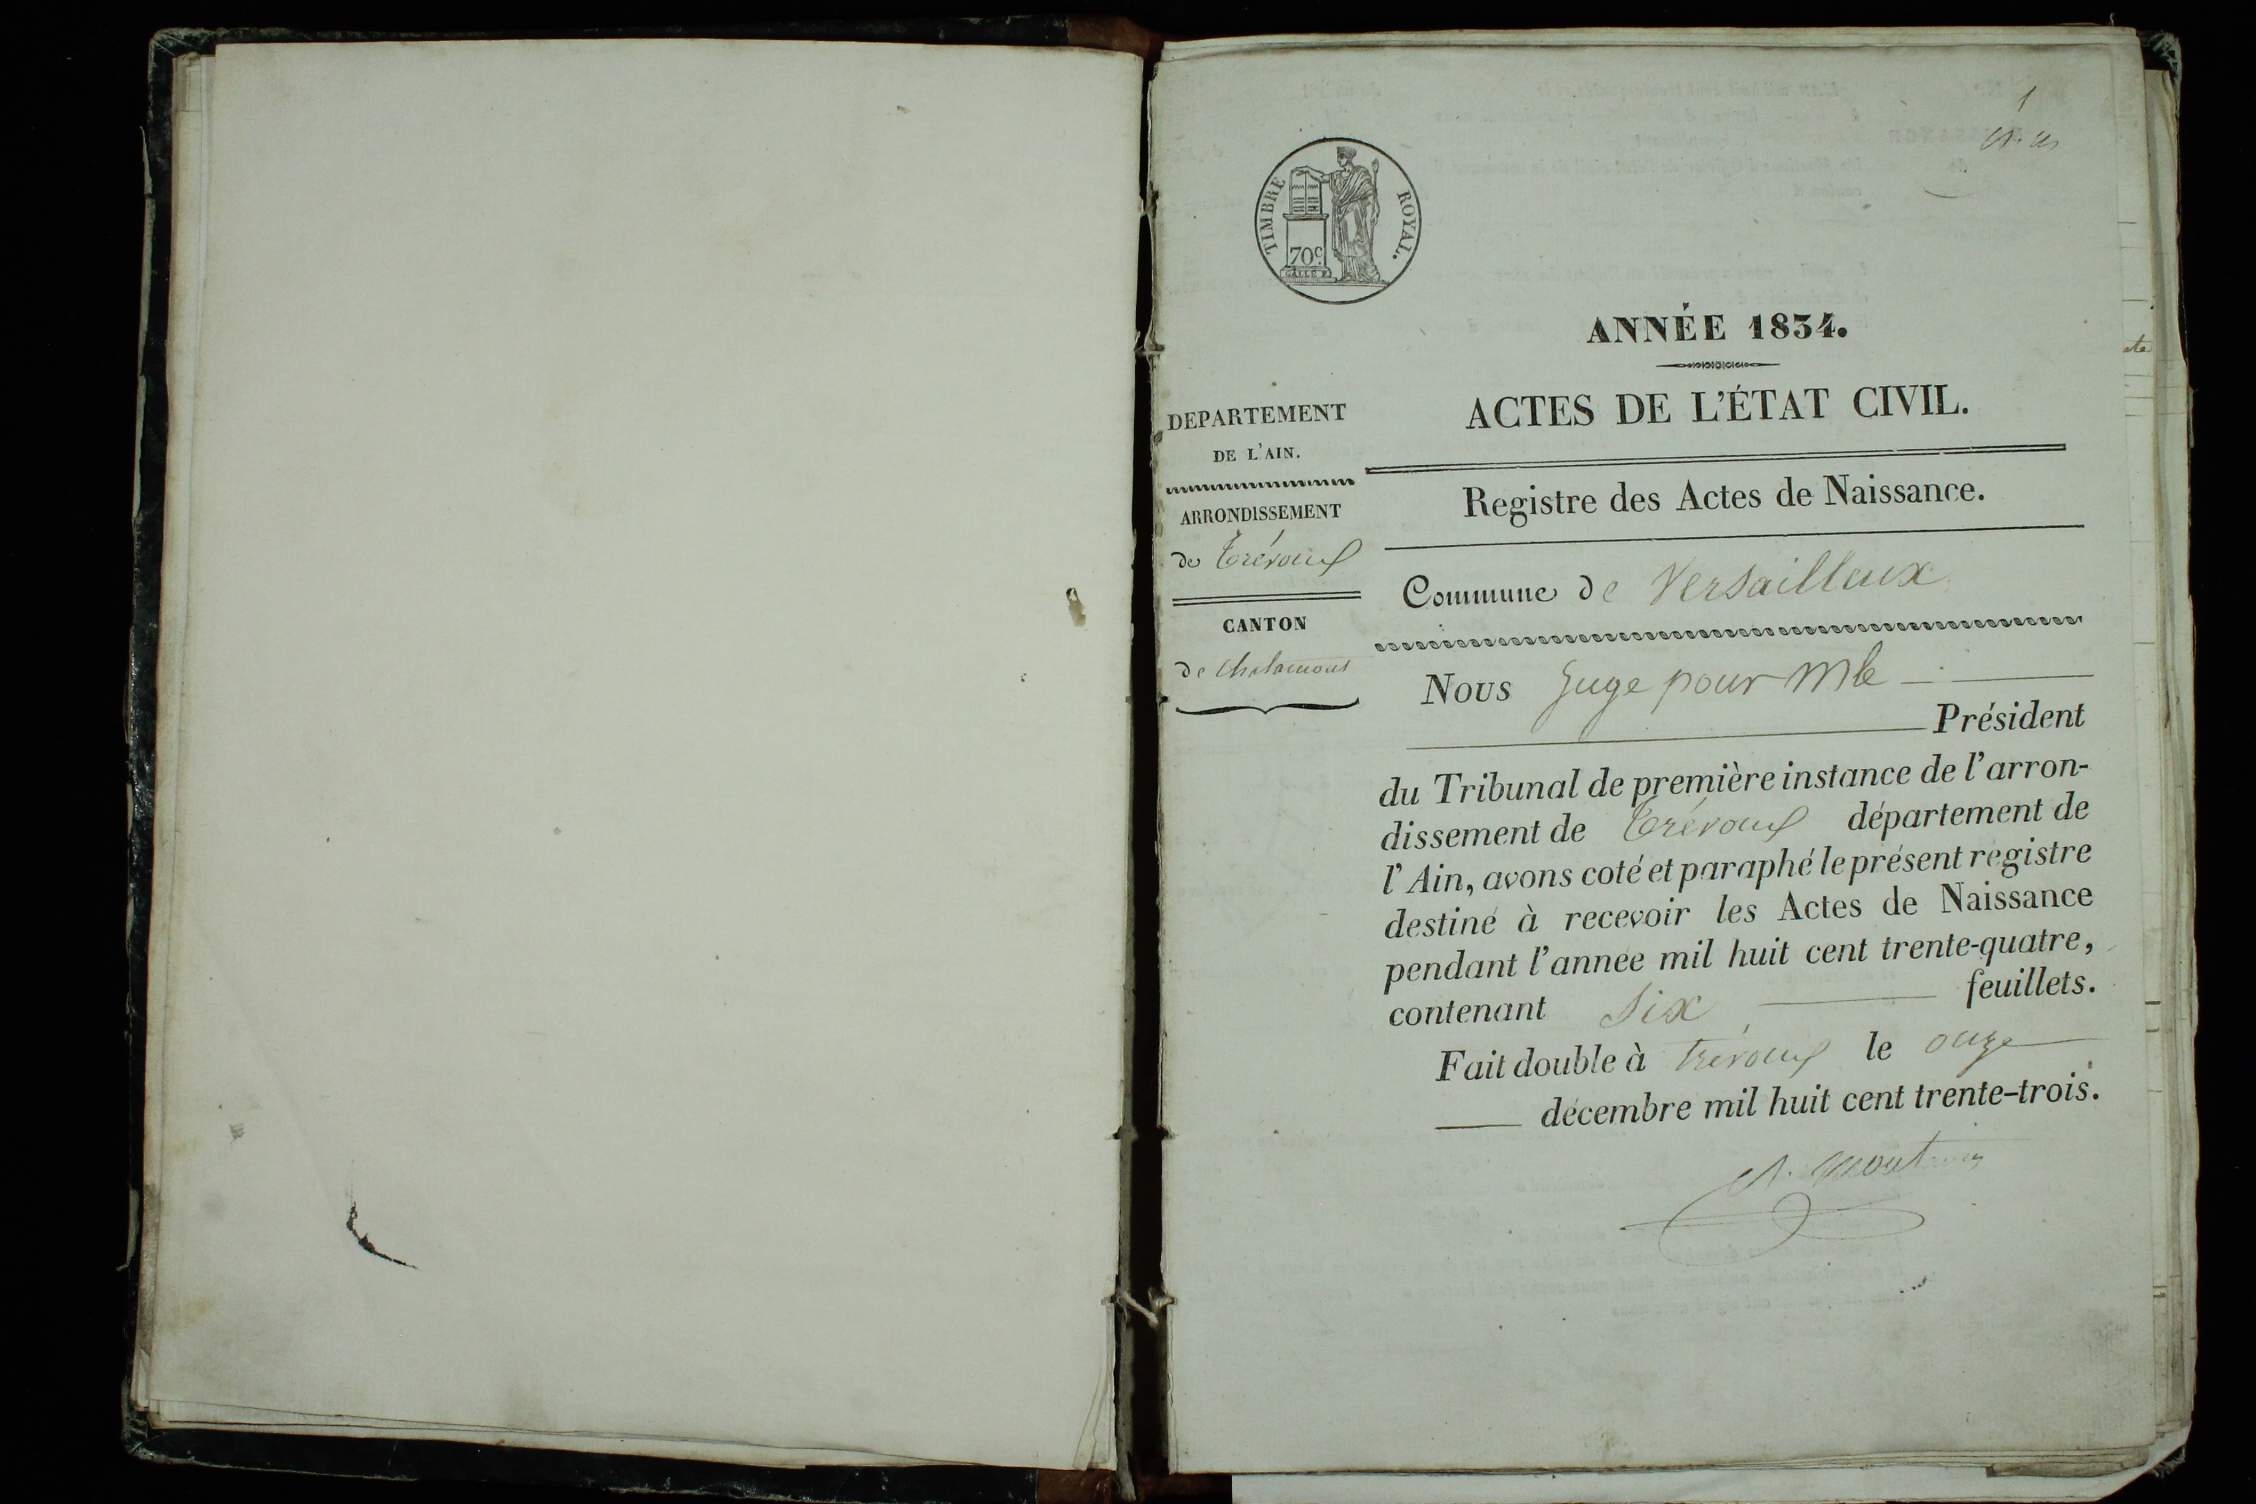 1
TIMBRE ROYAL.
70c.
ANNÉE 1834.
ACTES DE L'ÉTAT CIVIL.
Registre des Actes de Naissance.
DEPARTEMENT
DE L'AIN.
ARRONDISSEMENT
de Trévoux
CANTON
de Chalamont
Commune de Versailleux
Nous Juge pour Mle
Président
du Tribunal de première instance de l'arron-
dissement de Trévoux département de
l'Ain, avons coté et paraphé le présent registre
destiné à recevoir les Actes de Naissance
pendant l'année mil huit cent trente-quatre,
contenant Six feuillets.
Fait double à Trévoux le onze
décembre mil huit cent trente-trois.